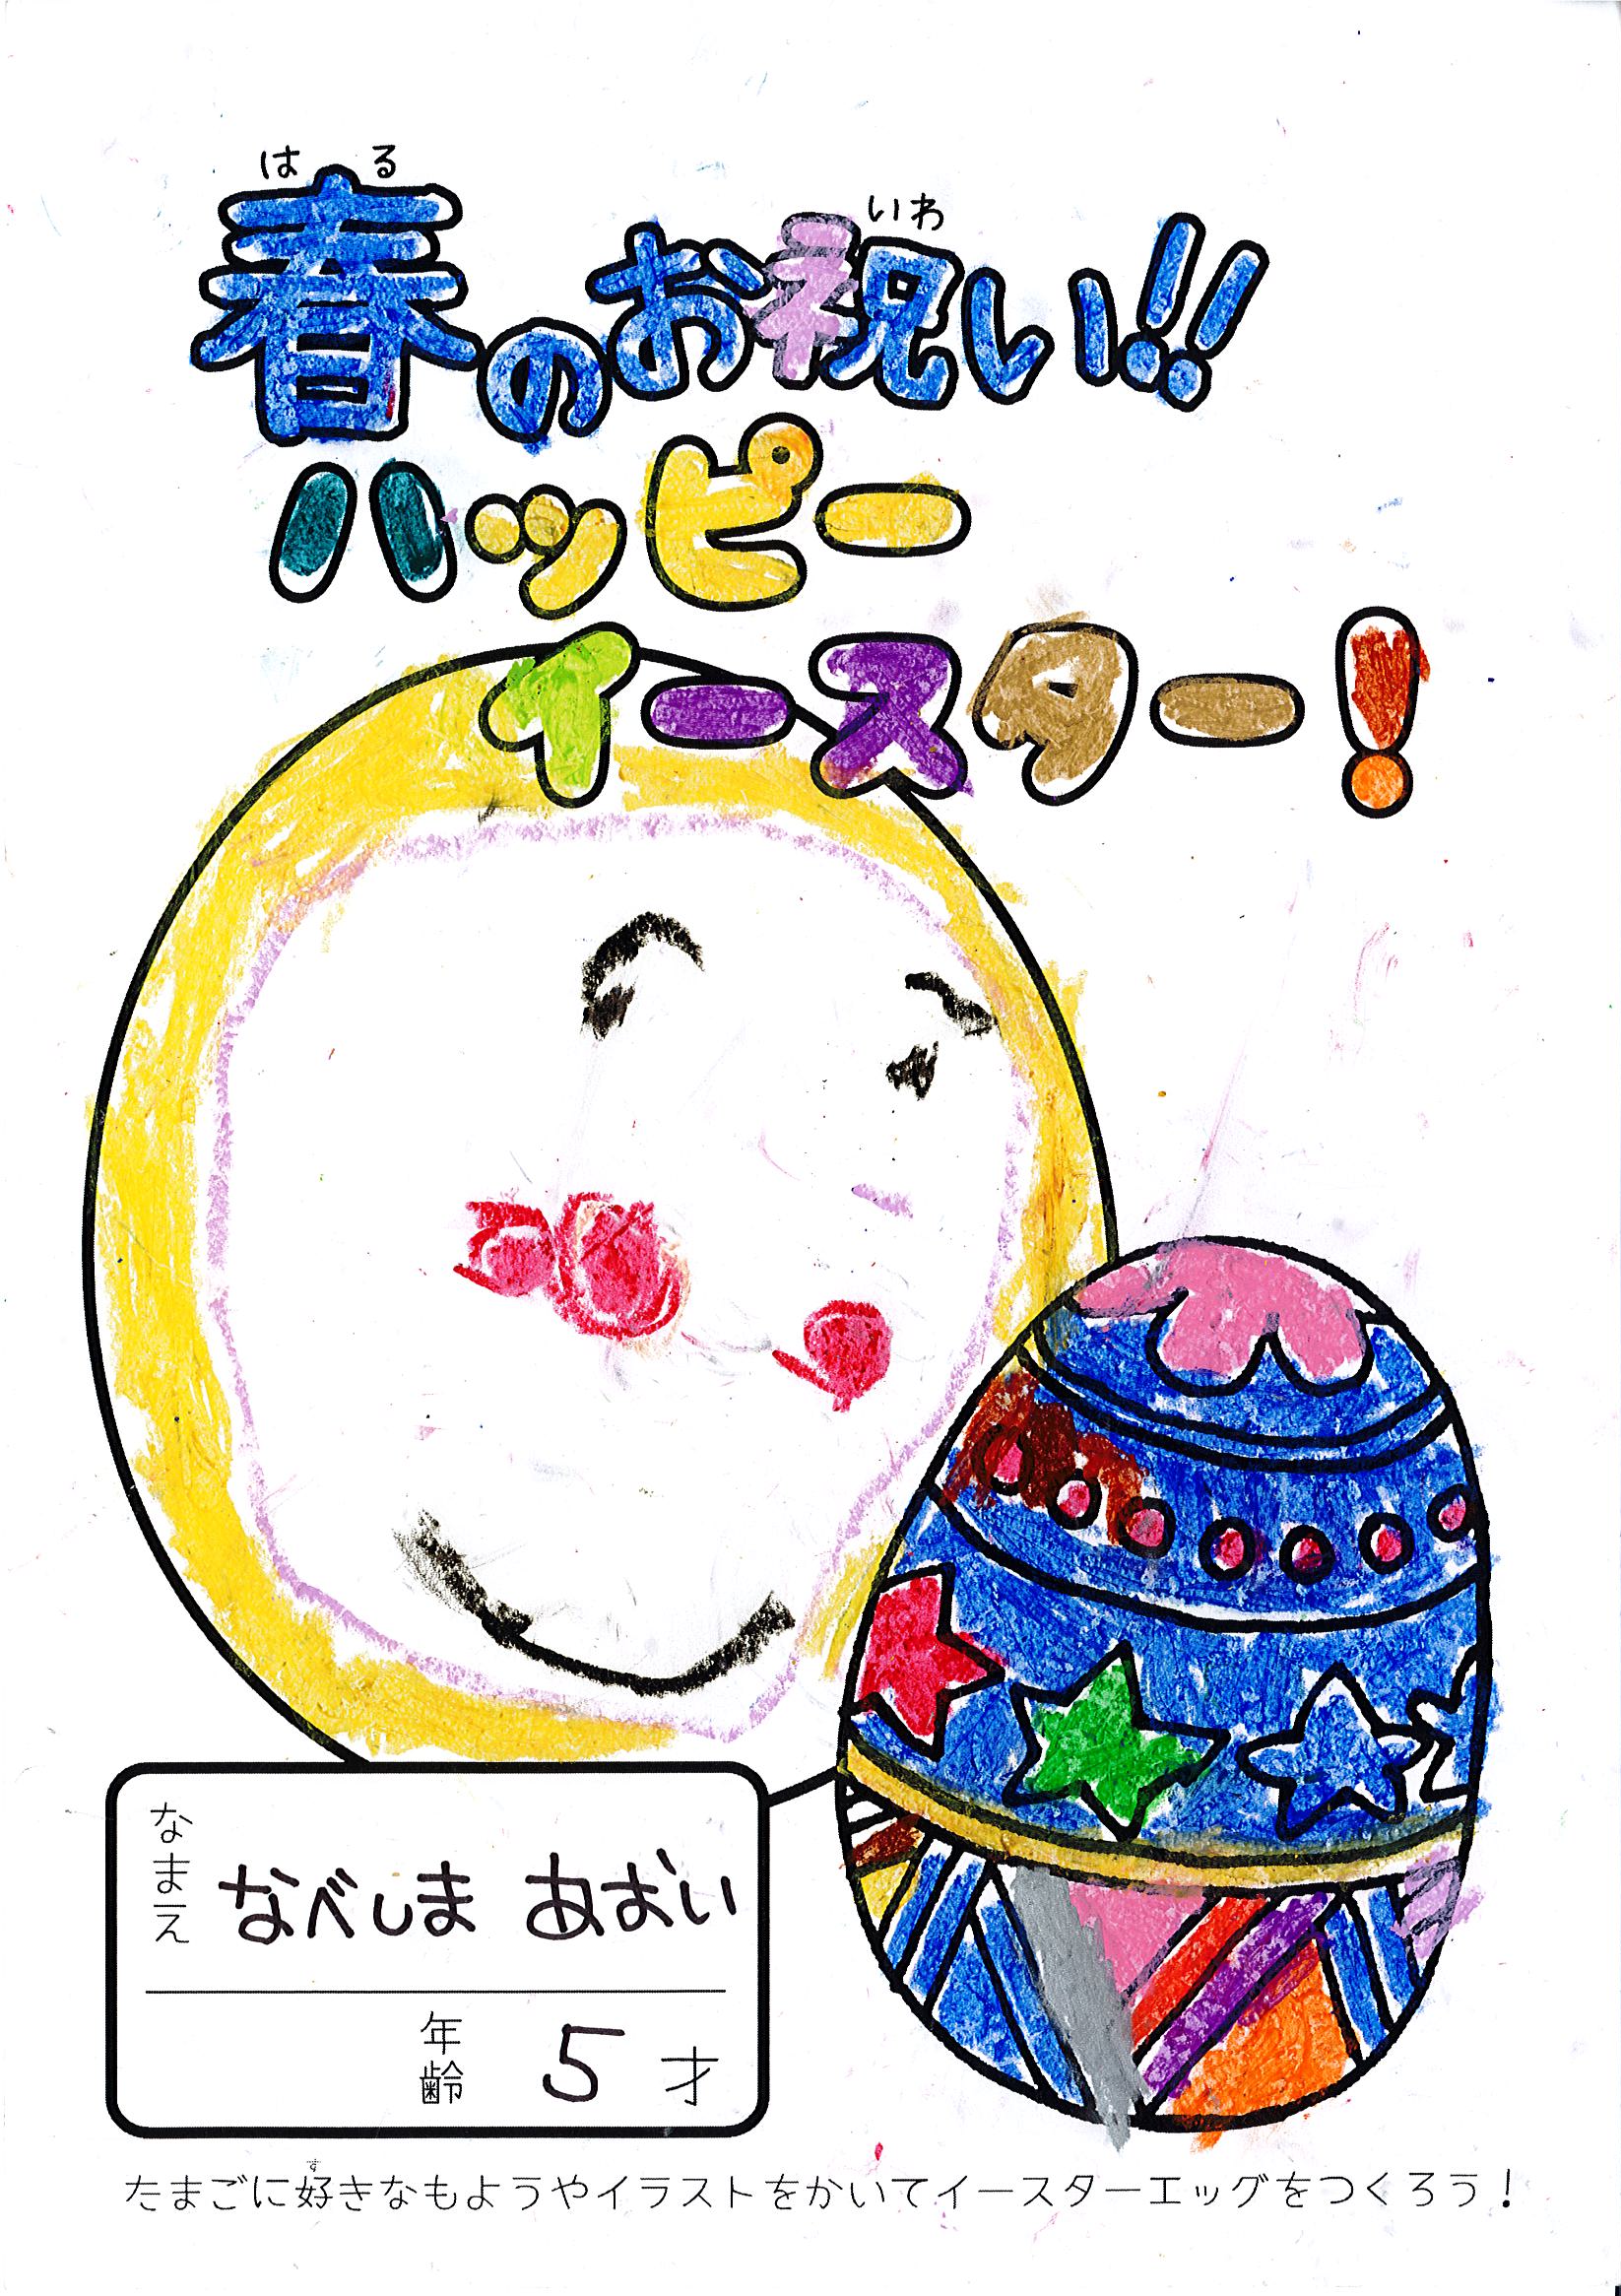 はる
いわ
春のお祝い!!
ハッピー
イースター!
なまえ
なべしま あおい
年齢 5才
す
たまごに好きなもようやイラストをかいてイースターエッグをつくろう!